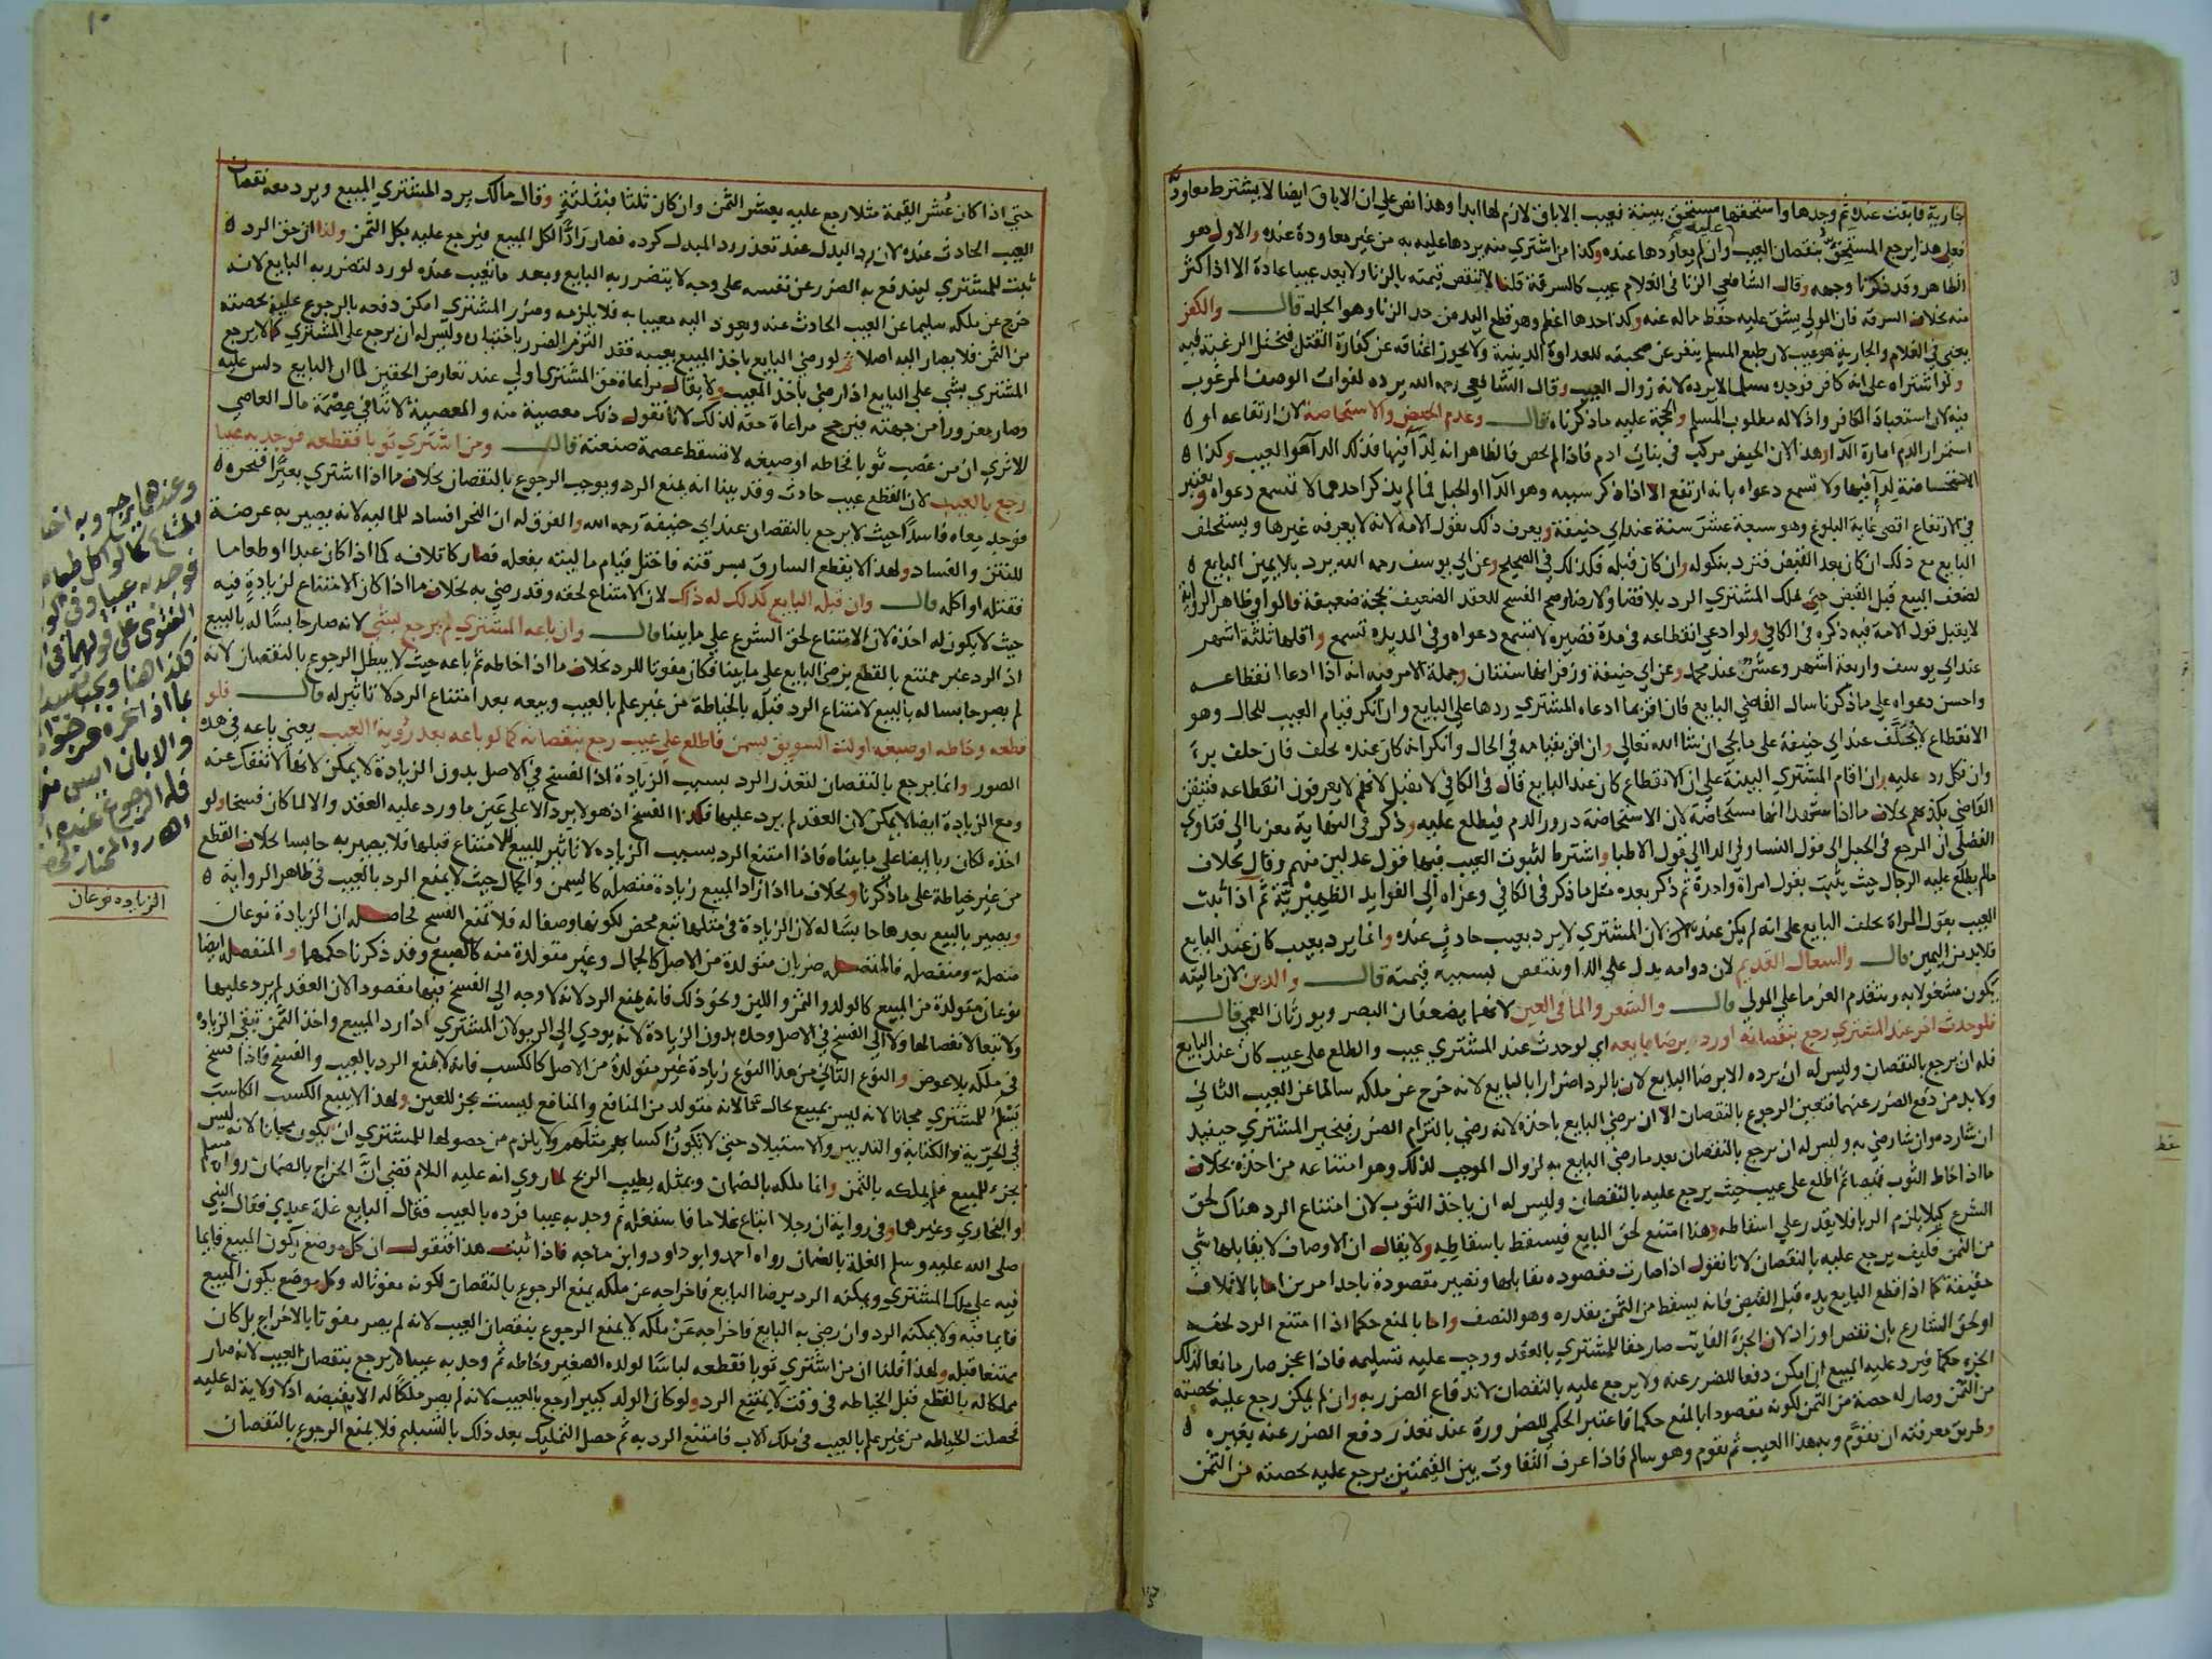 جارية فابقت عنده ثم وجدها واستحقها مستحق ببينة فعيب الاباق لازم لها ابدا وهذا نص على ان الاباق ايضا لا يشترط معاودته
فعلى هذا يرجع المستحق عليه بنقصان العيب وان لم يعاودها عنده وكذا من اشترى منه يردها عليه به من غير معاودة عنده والاول هو
الظاهر وقد ذكرنا وجهه وقال الشافعي الزنا في الغلام عيب كالسرقة قلنا لا تنقص قيمته بالزنا ولا يعد عيبا عادة الا اذا كثر
منه بخلاف السرقة فان المولى يشق عليه حفظ ماله عنه وكذا احدها اغلظ وهو قطع اليد من حد الزنا وهو الجلد قال والكفر
يعني في الغلام والجارية هو عيب لان طبع المسلم ينفر عن صحبته للعداوة الدينية ولا يجوز اعتاقه عن كفارة القتل فتختل الرغبة فيه
ولو اشتراه على انه كافر فوجده مسلما لا يرده لانه زوال العيب وقال الشافعي رحمه الله يرده لفوات الوصف المرغوب
فيه لان استعباد الكافر واذلاله مطلوب المسلم والحجة عليه ما ذكرناه قال وعدم الحيض والاستحاضة لان ارتفاعه او
استمرار الدم امارة الداء هذا لان الحيض مركب في بنات ادم فاذا لم تحض فالظاهر انه لداء فيها فذلك الداء هو العيب وكذا
الاستحاضة لداء فيها ولا تسمع دعواه بانه ارتفع الا اذا ذكر سببه وهو الداء او الحبل فما لم يذكر احدهما لا تسمع دعواه ويعتبر
في الارتفاع اقصى غاية البلوغ وهو سبعة عشر سنة عند ابي حنيفة ويعرف ذلك بقول الامة لانه لا يعرفه غيرها ويستحلف
البايع مع ذلك ان كان بعد القبض فترد بنكوله وان كان قبله فكذلك في الصحيح وعن ابي يوسف رحمه الله يرد بلا يمين البايع
لضعف البيع قبل القبض حتى يملك المشتري الرد بلا قضا ولا رضا وصح الفسخ للعقد الضعيف بحجة ضعيفة قالوا وظاهر الرواية
لا يقبل قول الامة فيه ذكره في الكافي ولو ادعى انقطاعه في مدة قصيرة لا تسمع دعواه وفي المديدة تسمع واقلها ثلثة اشهر
عند ابي يوسف واربعة اشهر وعشر عند محمد وعن ابي حنيفة وزفر انها سنتان وجملة الامر فيه انه اذا ادعا انقطاعه
واحسن دعواه على ما ذكرنا سال القاضي البايع فان اقر بما ادعاه المشتري ردها على البايع وان انكر قيام العيب للحال وهو
الانقطاع لا يحلف عند ابي حنيفة على ما يجي ان شا الله تعالى وان اقر بقيامه في الحال وانكر انه كان عنده يحلف فان حلف برئ
وان نكل رد عليه وان اقام المشتري البينة على ان الانقطاع كان عند البايع قال في الكافي لا تقبل لانهم لا يعرفون انقطاعه فتيقن
القاضي بكذبهم بخلاف ما اذا شهدا انها مستحاضة لان الاستحاضة درور الدم فيطلع عليه وذكر في النهاية معزيا الى فتاوى
الفضلى ان المرجع في الحبل الى قول النسا وفي الدا الى قول الاطبا واشترط لثبوت العيب فيها قول عدلين منهم وقال بخلاف
ما لم يطلع عليه الرجال حيث يثبت بقول امراة واحدة ثم ذكر بعده مثل ما ذكر في الكافي وعزاه الى الفوايد الظهيرية ثم اذا ثبت
العيب بقول المراة يحلف البايع على انه لم يكن عنده لان المشتري لا يرد بعيب حادث عنده وانما يرد بعيب كان عند البايع
فلا بد من اليمين قال والسعال القديم لان دوامه يدل على الدا وينتقص بسببه قيمته قال والدين لان ماليته
يكون مشغولا به ويتقدم الغرما على المولى قال والشعر والما في العين لانهما يضعفان البصر ويورثان العمى قال
فلو حدث اخر عند المشتري رجع بنقصانه او رد برضا بايعه اي لو حدث عند المشتري عيب واطلع على عيب كان عند البايع
فله ان يرجع بالنقصان وليس له ان يرده الا برضا البايع لان بالرد اضرارا بالبايع لانه خرج عن ملكه سالما عن العيب الثاني
ولا بد من دفع الضرر عنهما فتعين الرجوع بالنقصان الا ان يرضى البايع باخذه لانه رضي بالتزام الضرر فيتخير المشتري حينيذ
ان شا رده وان شا رضي به وليس له ان يرجع بالنقصان بعد ما رضي البايع به لزوال الموجب لذلك وهو امتناعه من اخذه بخلاف
ما اذا خاط الثوب قميصا ثم اطلع على عيب حيث يرجع عليه بالنقصان وليس له ان ياخذ الثوب لان امتناع الرد هناك لحق
الشرع كيلا يلزم الربا فلا يقدر على اسقاطه وهذا امتنع لحق البايع فيسقط باسقاطه ولا يقال ان الاوصاف لا يقابلها شي
من الثمن فكيف يرجع عليه بالنقصان لانا نقول اذا صارت مقصوده يقابلها وتصير مقصودة باحد امرين اما بالاتلاف
حقيقة كما اذا قطع البايع يده قبل القبض فانه يسقط من الثمن بقدره وهو النصف واما بالمنع حكما اذا امتنع الرد لحقه
او لحق الشارع بان نقص او زاد لان الجزء الفايت صار حقا للمشتري بالعقد ووجب عليه تسليمه فاذا عجز صار مانعا لذلك
الجزء حكما فيرد عليه المبيع ان امكن دفعا للضرر عنه ولا يرجع عليه بالنقصان لاندفاع الضرر به وان لم يمكن رجع عليه بحصته
من الثمن وصار له حصة من الثمن لكونه مقصودا بالمنع حكما فاعتبر الحكمي للضرورة عند تعذر دفع الضرر عنه بغيره
وطريق معرفته ان يقوم وبه هذا العيب ثم يقوم وهو سالم فاذا عرف التفاوت بين القيمتين يرجع عليه بحصته من الثمن
حتى اذا كان عشر القيمة مثلا رجع عليه بعشر الثمن وان كان ثلثا فبثلثه وقال مالك يرد المشتري المبيع ويرد معه نقصان
العيب الحادث عنده لان رد البدل عند تعذر رد المبدل كرده فصار رادا لكل المبيع فيرجع عليه بكل الثمن ولنا ان حق الرد
ثبت للمشتري ليندفع به الضرر عن نفسه على وجه لا يتضرر به البايع وبعد ما تعيب عنده لو رد لتضرر به البايع لانه
خرج عن ملكه سليما عن العيب الحادث عنده ويعود اليه معيبا به فلا يلزمه وضرر المشتري امكن دفعه بالرجوع عليه بحصته
من الثمن فلا يصار اليه اصلا ثم لو رضي البايع باخذ المبيع بعيبه فقد التزم الضرر باختياره وليس له ان يرجع على المشتري كما لا يرجع
المشتري بشي على البايع اذا رضي باخذ المعيب ولا يقال مراعاة حق المشتري اولى عند تعارض الحقين لما ان البايع دلس عليه
وصار مغرورا من جهته فترجح مراعاة حقه لذلك لانا نقول ذلك معصية منه والمعصية لا تنافي عصمة مال العاصي
الا ترى ان من غصب ثوبا فخاطه او صبغه لا تسقط عصمة صنعته قال ومن اشترى ثوبا فقطعه فوجد به عيبا
رجع بالعيب لان القطع عيب حادث وقد بينا انه يمنع الرد ويوجب الرجوع بالنقصان بخلاف ما اذا اشترى بعيرا فنحره
فوجد معاه فاسدا حيث لا يرجع بالنقصان عند ابي حنيفة رحمه الله والفرق له ان النحر افساد للمالية لانه يصير به عرضة
للنتن والفساد ولهذا لا يقطع السارق بسرقته فاختل قيام ماليته بفعله فصار كاتلافه كما اذا كان عبدا او طعاما
فقتله او اكله قال وان قبله البايع كذلك له ذلك لان الامتناع لحقه وقد رضي به بخلاف ما اذا كان الامتناع لزيادة فيه
حيث لا يكون له اخذه لان الامتناع لحق الشرع على ما بينا قال وان باعه المشتري لم يرجع بشي لانه صار حابسا له بالبيع
اذ الرد غير ممتنع بالقطع برضى البايع على ما بينا فكان مفوتا للرد بخلاف ما اذا خاطه ثم باعه حيث لا يبطل الرجوع بالنقصان لانه
لم يصر حابسا له بالبيع لامتناع الرد قبله بالخياطة من غير علم بالعيب وبيعه بعد امتناع الرد لا تاثير له قال فلو
قطعه وخاطه او صبغه او لت السويق بسمن فاطلع على عيب رجع بنقصانه كما لو باعه بعد رؤية العيب يعني باعه في هذه
الصور وانما يرجع بالنقصان لتعذر الرد بسبب الزيادة اذ الفسخ في الاصل بدون الزيادة لا يمكن لانها لا تنفك عنه
ومع الزيادة ايضا لا يمكن لان العقد لم يرد عليها فكذا الفسخ اذ هو لا يرد الا على عين ما ورد عليه العقد والا لما كان فسخا ولو
اخذه لكان ربا ايضا على ما بيناه فاذا امتنع الرد بسبب الزياده لا تاثير للبيع للامتناع قبلها فلا يصير به حابسا بخلاف القطع
من غير خياطة على ما ذكرنا وبخلاف ما اذا زاد المبيع زيادة متصله كالسمن والجمال حيث لا يمنع الرد بالعيب في ظاهر الرواية
ويصير بالبيع بعدها حابسا له لان الزيادة في مثلها تبع محض لكونها وصفا له فلا تمنع الفسخ فحاصله ان الزيادة نوعان
متصلة ومنفصله فالمتصله ضربان متولدة من الاصل كالجمال وغير متولدة منه كالصبغ وقد ذكرنا حكمهما والمنفصله ايضا
نوعان متولدة من المبيع كالولد والثمر واللبن ونحو ذلك فانه يمنع الرد لانه لا وجه الى الفسخ فيها مقصودا لان العقد لم يرد عليها
ولا تبعا لانفصالها ولا الى الفسخ في الاصل وحده بدون الزيادة لانه يودي الى الربو لان المشتري اذا رد المبيع واخذ الثمن تبقى الزيادة
في ملكه بلا عوض والنوع الثاني من هذا النوع زيادة غير متولدة من الاصل كالكسب فانه لا يمنع الرد بالعيب والفسخ فاذا فسخ
يسلم للمشتري مجانا لانه ليس بمبيع بحال ما لانه متولد من المنافع والمنافع ليست بجزء للعين ولهذا لا يتبع الكسب الكاسب
في الحرية والكتابة والتدبير والاستيلاد حتى لا تكون اكسابهم مثلهم ولا يلزم من حصولها للمشتري ان يكون مجانا لانه ليس
بجزء للمبيع فلم يملكه بالثمن وانما ملكه بالضمان وبمثله يطيب الربح لما روي انه عليه السلام قضى ان الخراج بالضمان رواه مسلم
والبخاري وغيرهما وفي رواية ان رجلا ابتاع غلاما فاستغله ثم وجد به عيبا فرده بالعيب فقال البايع غلة عبدي فقال النبي
صلى الله عليه وسلم الغلة بالضمان رواه احمد وابو داود وابن ماجه فاذا ثبت هذا فنقول ان كل موضع يكون المبيع قايما
فيه على ملك المشتري ويمكنه الرد برضا البايع فاخراجه عن ملكه يمنع الرجوع بالنقصان لكونه مفوتا له وكل موضع يكون المبيع
قايما فيه ولا يمكنه الرد وان رضي به البايع فاخراجه عن ملكه لا يمنع الرجوع بنقصان العيب لانه لم يصر مفوتا بالاخراج بل كان
ممتنعا قبله ولهذا قلنا ان من اشترى ثوبا فقطعه لباسا لولده الصغير وخاطه ثم وجد به عيبا لا يرجع بنقصان العيب لانه صار
مملكا له بالقطع قبل الخياطه في وقت لا يمتنع الرد ولو كان الولد كبيرا رجع بالعيب لانه لم يصر ملكا له الا بقبضه اذ لا ولاية له عليه
فحصلت الخياطه من غير علم بالعيب في ملك الاب فامتنع الرد به ثم حصل التمليك بعد ذلك بالتسليم فلا يمنع الرجوع بالنقصان
وعندهما يرجع وبه اخذ
كما لو اكل طعاما
فوجد به عيبا وفي
الفتوى على قولهما في
فكذا هنا
الزياده نوعان